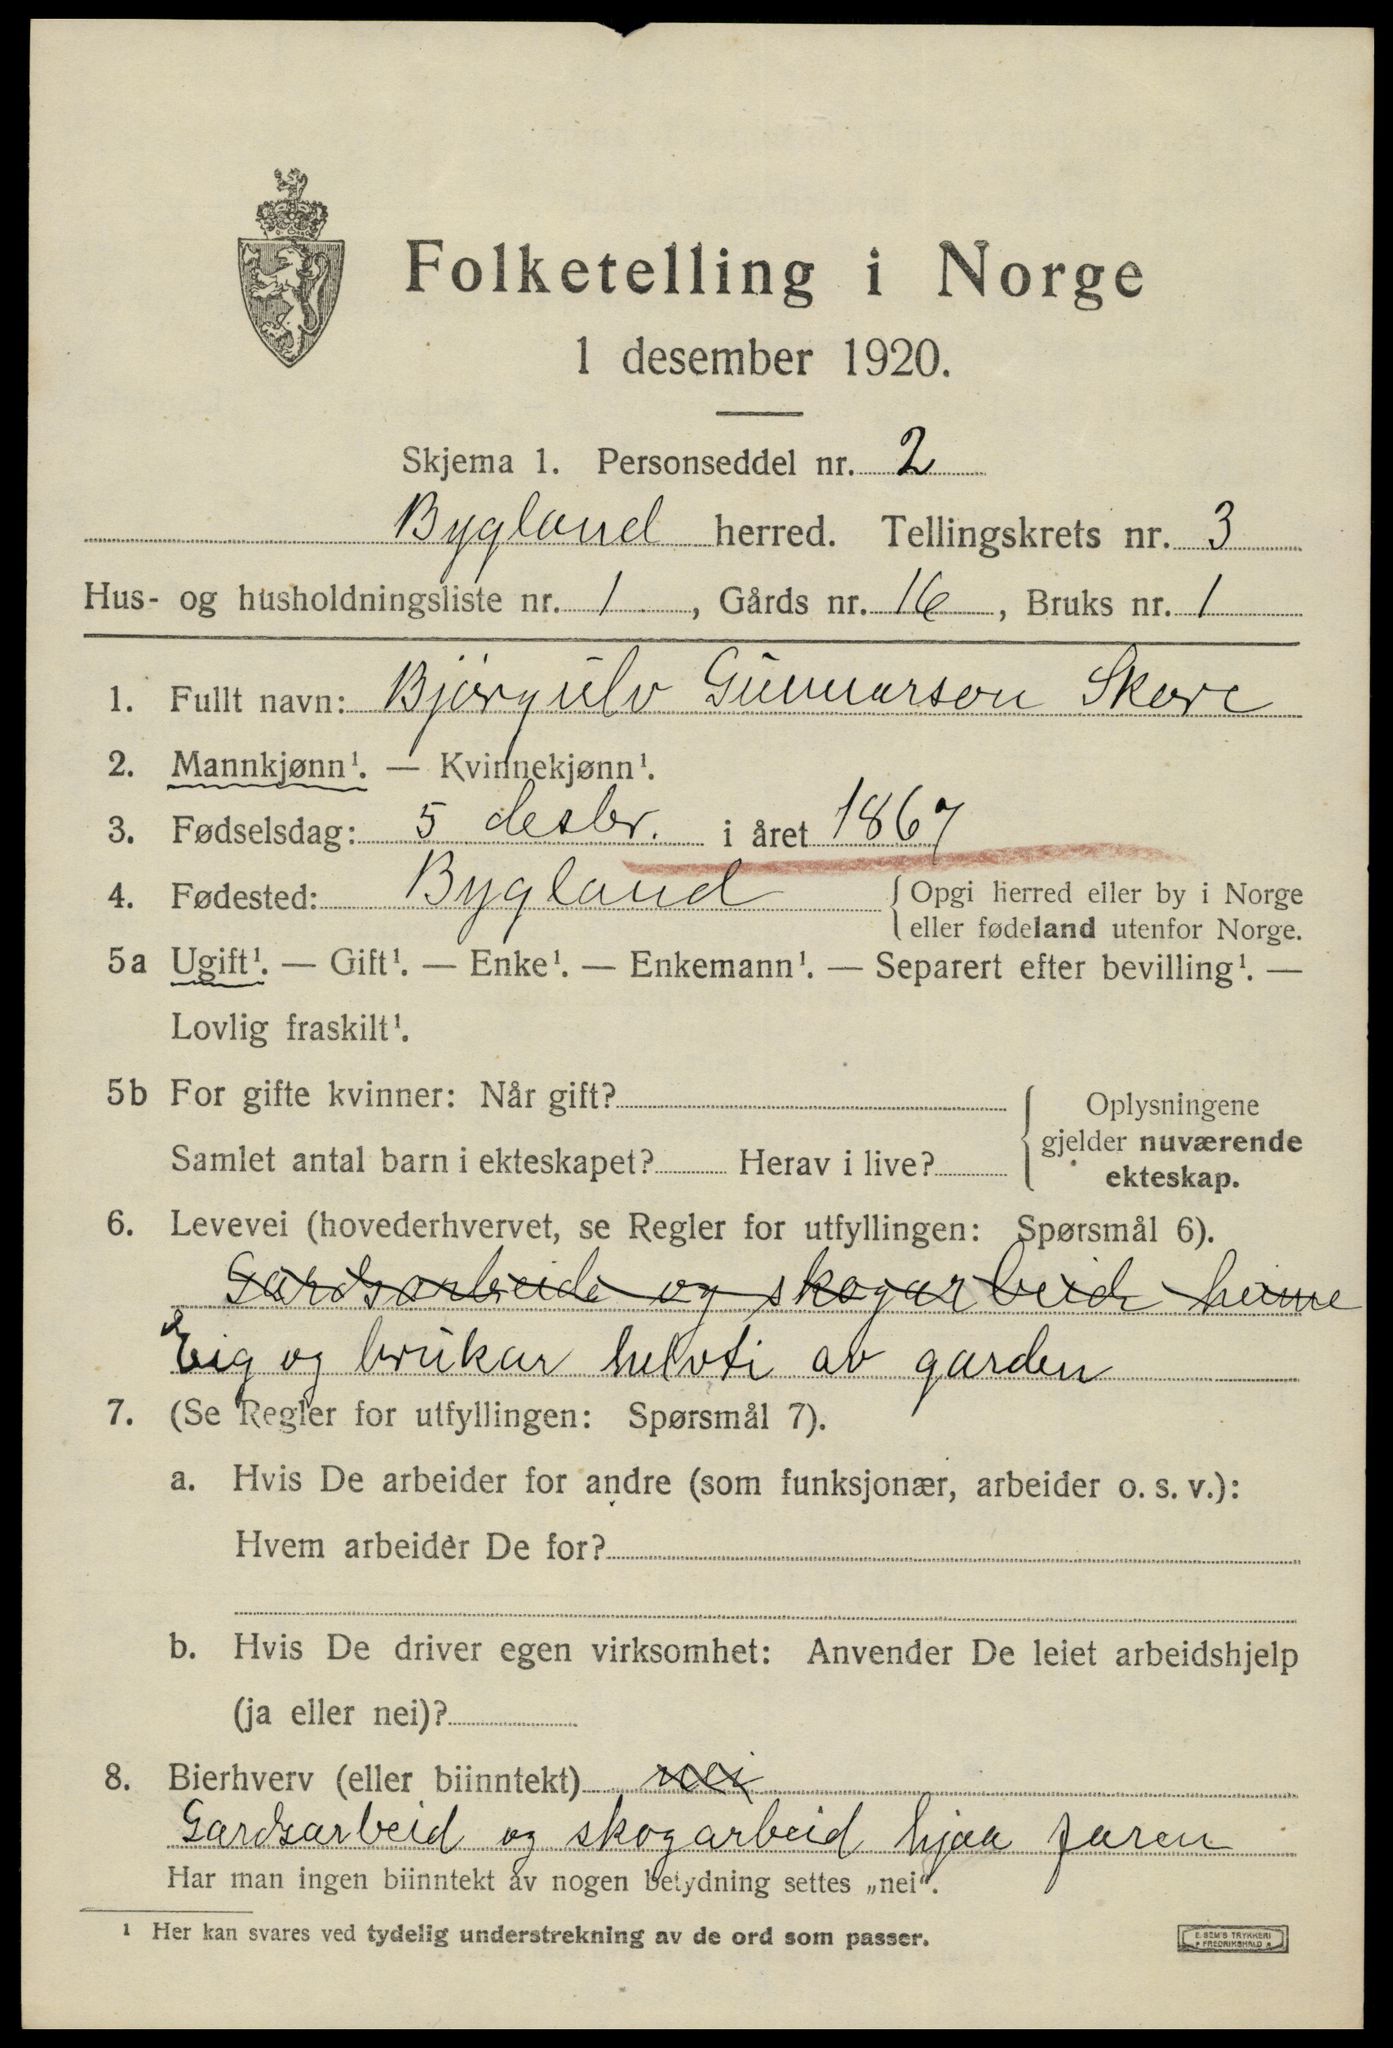 Folketelling i Norge
1 desember 1920.
Skjema 1. Personseddel nr. 2
Bygland herred. Tellingskrets nr. 3
Hus- og husholdningsliste nr. 1, Gårds nr. 16, Bruks nr. 1
1. Fullt navn: Bjørgulv Gunnarson Skare
2. Mannkjønn¹. — Kvinnekjønn¹.
3. Fødselsdag: 5 desbr. i året 1867
4. Fødested: Bygland { Opgi herred eller by i Norge
eller fødeland utenfor Norge.
5a Ugift¹. — Gift¹. — Enke¹. — Enkemann¹. — Separert efter bevilling¹. —
Lovlig fraskilt¹.
5b For gifte kvinner: Når gift? { Oplysningene
gjelder nuværende
Samlet antal barn i ekteskapet? Herav i live?
ekteskap.
6. Levevei (hovederhvervet, se Regler for utfyllingen: Spørsmål 6).
Gardsarbeide og skogarbeide heime
Eig og brukar helvti av garden
7. (Se Regler for utfyllingen: Spørsmål 7).
a. Hvis De arbeider for andre (som funksjonær, arbeider o. s. v.):
Hvem arbeider De for?
b. Hvis De driver egen virksomhet: Anvender De leiet arbeidshjelp
(ja eller nei)?
8. Bierhverv (eller biinntekt) nei
Gardsarbeid og skogarbeid hjaa faren
Har man ingen biinntekt av nogen betydning settes „nei".
¹ Her kan svares ved tydelig understrekning av de ord som passer.
E. SEM'S TRYKKERI
FREDRIKSHALD